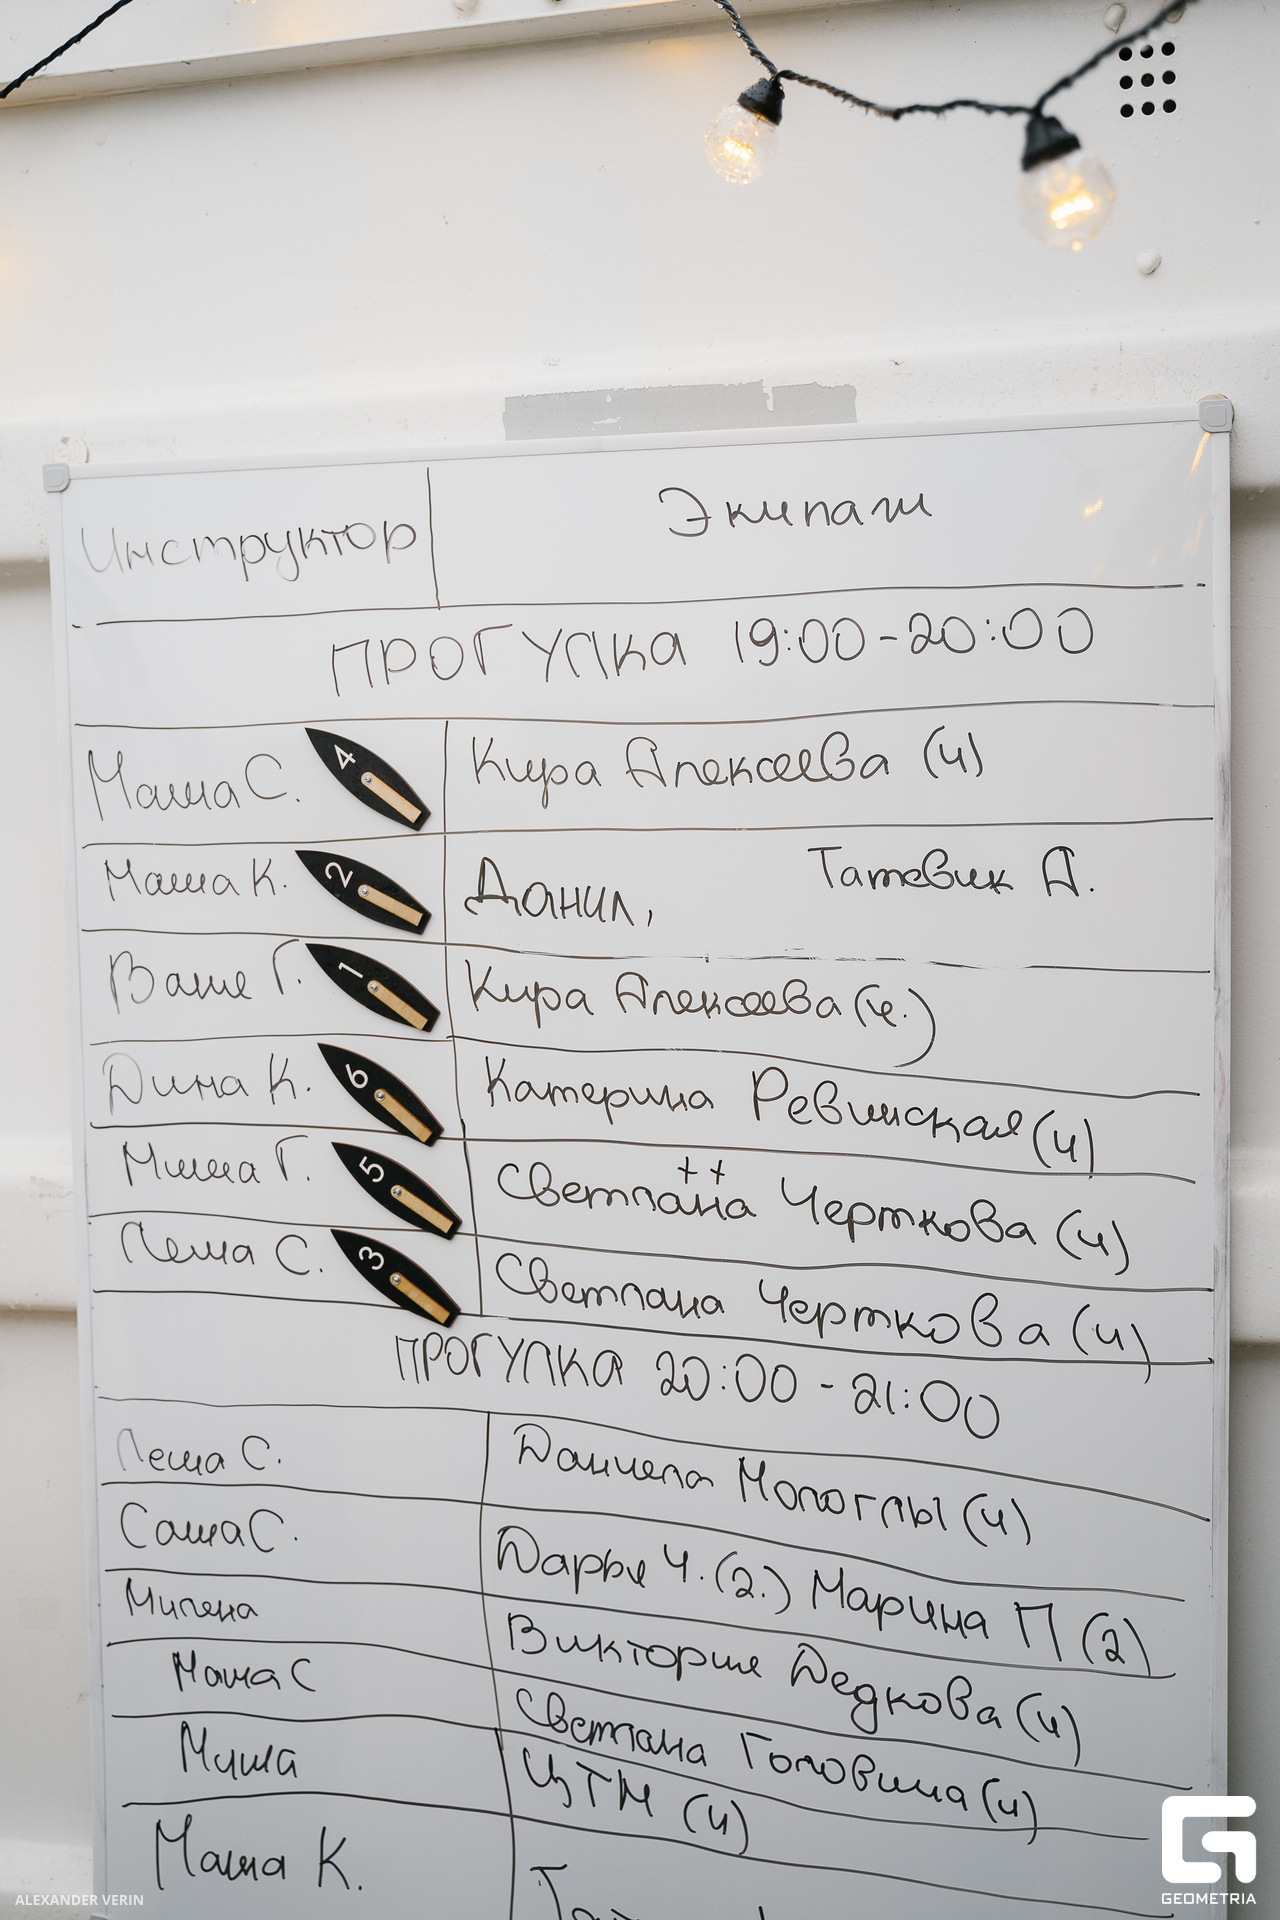 Инструктор Экипаж
ПРОГУЛКА 19:00-20:00
Маша С. 4 Кира Алексеева (4)
Маша К. 2 Данил, Татевик А.
Ваше Г. 1 Кира Алексеева (4.)
Дина К. 6 Катерина Ревинская (4)
Миша Г. 5 Светлана ++ Черткова (4)
Леша С. 3 Светлана Черткова (4)
ПРОГУЛКА 20:00 - 21:00
Леша С. Даниела Мологлы (4)
Саша С. Дарья Ч. (2.) Марина П (2)
Милена Виктория Дедкова (4)
Маша С Светлана Головина (4)
Миша ЦТМ (4)
Маша К.
ALEXANDER VERIN
GEOMETRIA